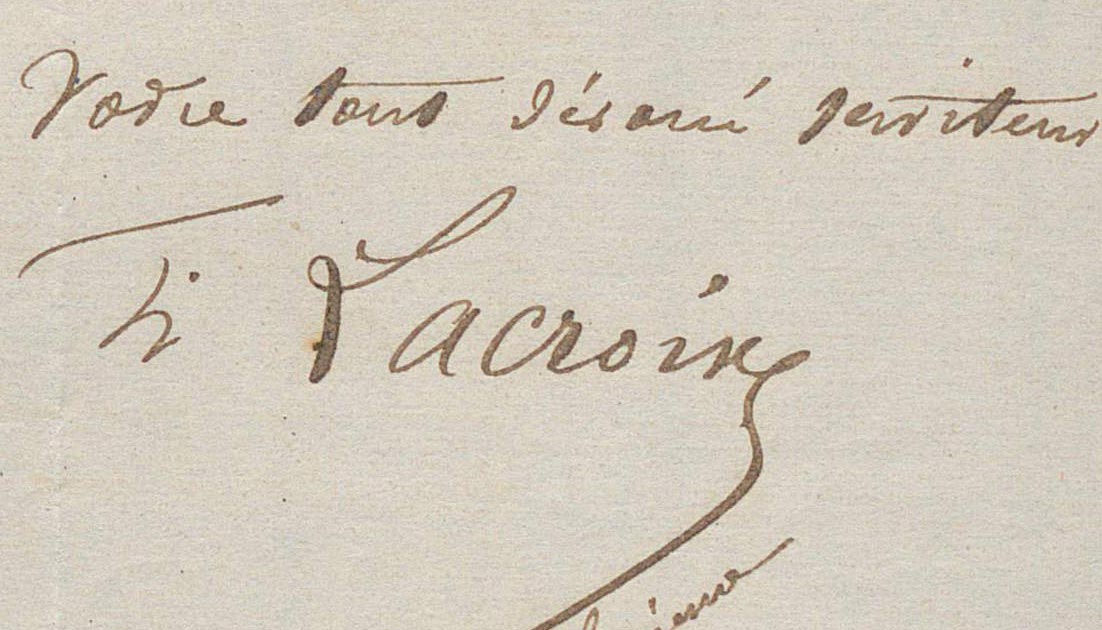 Votre tout dévoué serviteur
F. Lacroix